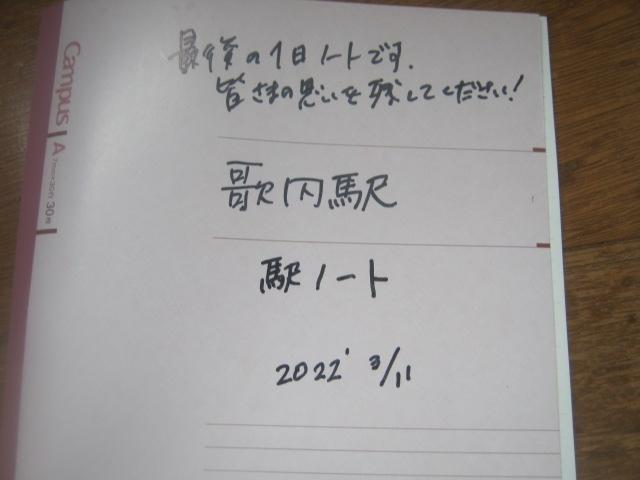 最後の1日ノートです.
皆さまの思いを残してください!
歌内駅
駅ノート
2022' 3/11
Campus
A
7mm×30行 30枚